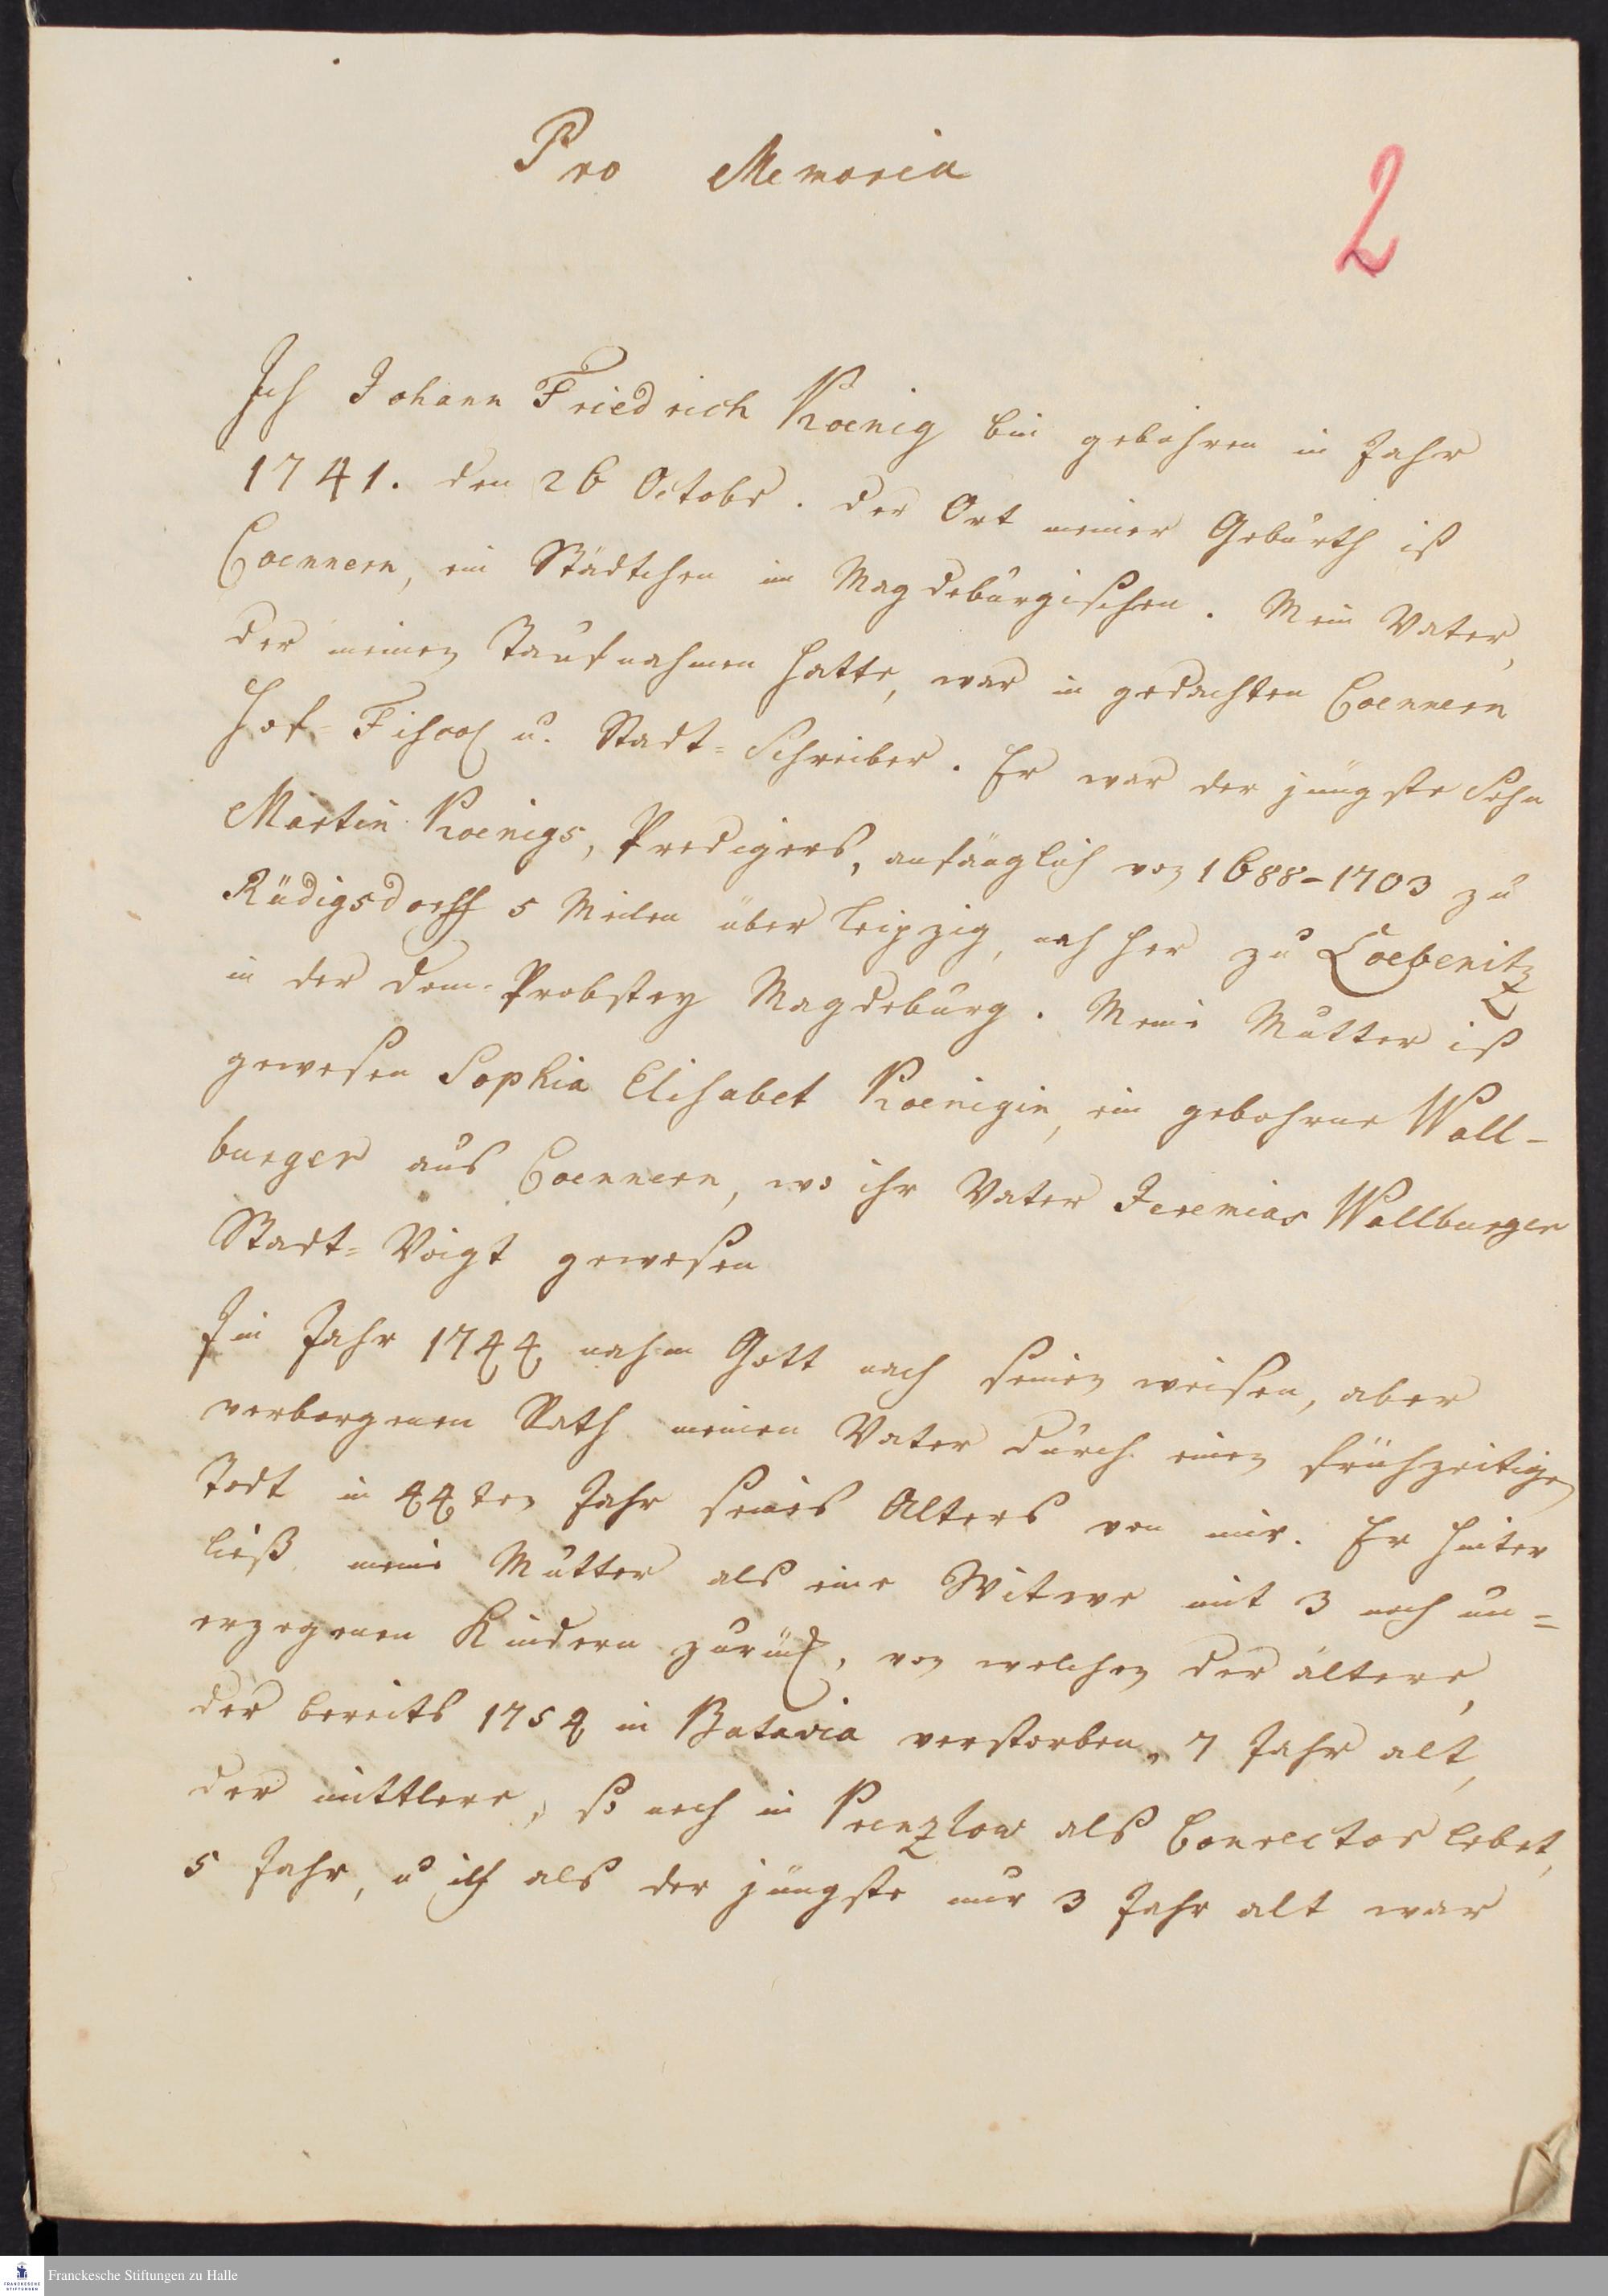 Pro Memoria
2
Ich Johann Friedrich Koenig bin gebohren in Jahr
1741. den 26 Octobr. der Ort meiner Gebürth ist
Coennern, ein Städtchen im Magdebürgischen. Mein Vater,
der meinen Taufnahmen hatte, war in gedachten Coennern
Hof- u. Stadt-Schreiber. Er war der jüngste Sohn
Martin Koenigs, Predigers, anfänglich von 1688-1703 zu
Rüdigsdorff 5 Meilen über Leipzig, nach her zu Loebenitz
in der Dom-Probstey Magdebürg. Meine Mutter ist
gewesen Sophia Elisabet Koenigin, ein gebohrne Wall-
burger aus Coennern, wo ihr Vater Jeremias Wallburger
Stadt-Voigt gewesen
Im Jahr 1744 nahm Gott nach seinen weisen, aber
verborgenen Rath meinen Vater durch einen frühzeitigen
Todt in 44ten Jahr seines Alters von mir. Er hinter
ließ meine Mutter als eine Witwe mit 3 noch un=
erzogenen Kindern zurück, von welchen der ältere,
der bereits 1754 in Batavia verstorben, 7 Jahr alt,
der mittlere, so noch in Prenzlow als Conrector lebet,
5 Jahr, u ich als der jüngste nur 3 Jahr alt war
Franckesche Stiftungen zu Halle